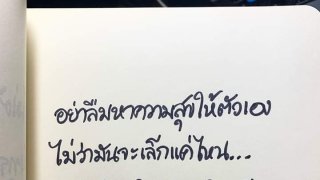 อย่าลืมหาความสุขให้ตัวเอง
ไม่ว่ามันจะเล็กแค่ไหน...